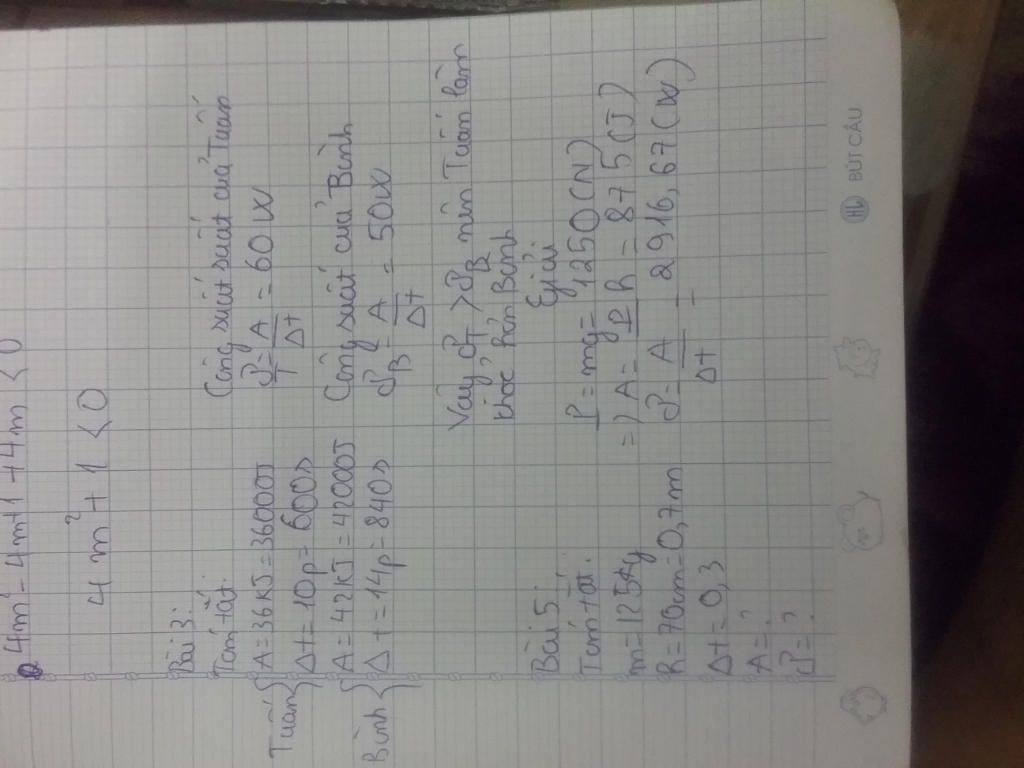 4m² - 4m + 1 + 4m < 0
4m² + 1 < 0
Bài 3:
Tóm tắt:
Tuấn { A = 36KJ = 36000J
Δt = 10p = 600s
Bình { A = 42KJ = 42000J
Δt = 14p = 840s
Công suất suất của Tuấn
𝒫T = A/Δt = 60W
Công suất của Bình
𝒫B = A/Δt = 50W
Vậy 𝒫T > 𝒫B nên Tuấn làm
khoẻ hơn Bình
Bài 5:
Tóm tắt:
m = 125kg
h = 70cm = 0,7m
Δt = 0,3
A = ?
𝒫 = ?
Giải
P = mg = 1250(N)
=> A = P h = 875(J)
𝒫 = A/Δt = 2916,67(W)
BÚT CẦU